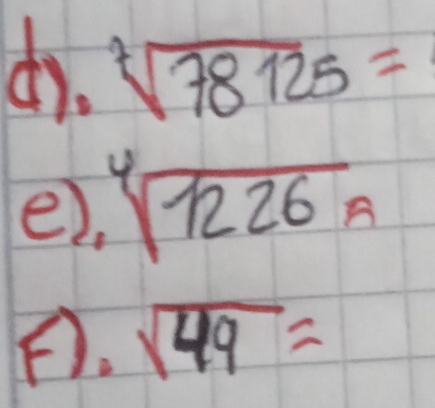 d). ⁷√78125 =
e). ⁴√1226 =
F). √49 =